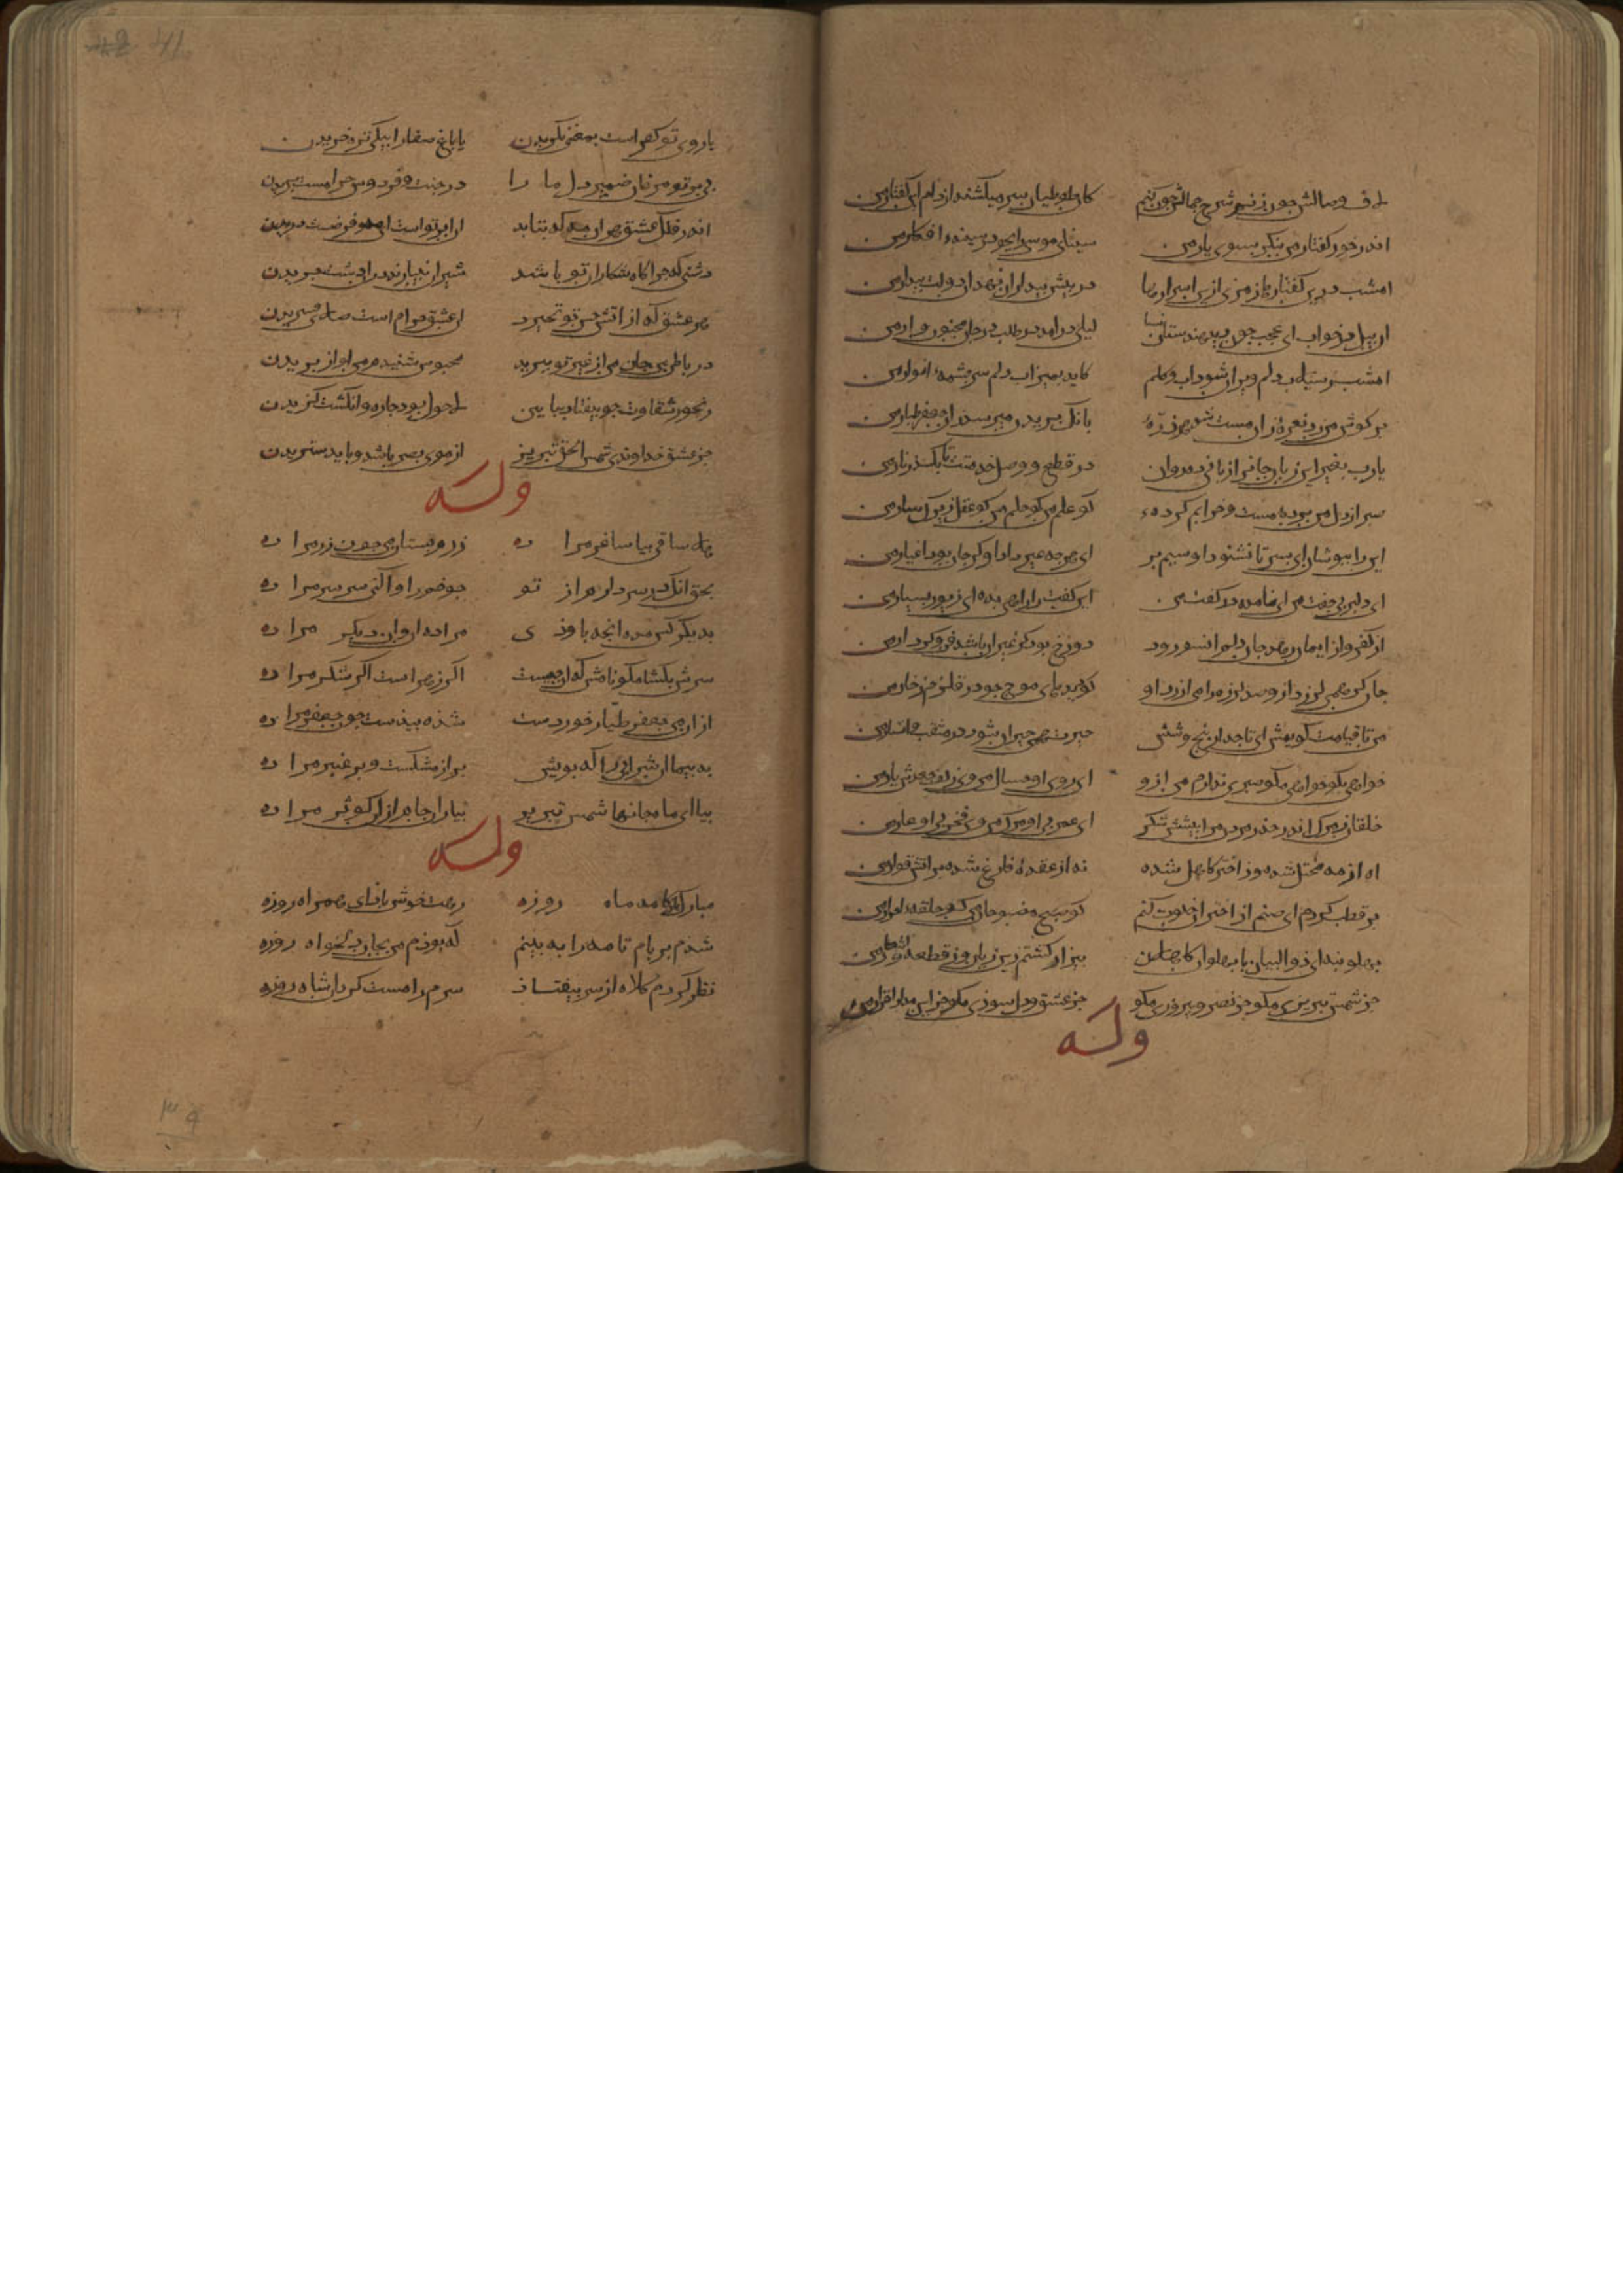 لاف وصالش چون زنم شرح جمالش چون کنم کان طوطیان سر میکشند از دام این گفتار من
اندر خور گفتار من منگر بسوی یار من سینای موسی را نگر در سینه افکار من
امشب درین گفتارها رمزی از ان اسرارها در پیش بیداران نهد آن دولت بیدار من
آن پیل بی خواب ای عجب چون دید هندستان لیلی درآمد در طلب در جان مجنون وار من
امشب ز سیلاب دلم ویران شود آب و گلم کاید به میزاب دلم سرچشمه انوار من
بر گوش من زد نعره زان مست شد هر ذره بانگ پریدن میرسد زان جعفر طیار من
یارب بغیر این زبان جانرا زبانی ده روان در قطع و وصل وحدتت تا بگسلد زنار من
صبر از دل من برده مست و خرابم کرده کو علم من کو حلم من کو عقل زیرک سار من
این را بپوشان ای پسر تا نشنود آن سیمبر ای هر چه غیر داد او گر جان بود اغیار من
ای دلبر بی جفت من ای نامده در گفت من این گفت را زیبی بده ای زیور بسیار من
از کفر و از ایمان رهد جان و دلم آن سو رود دوزخ بود گر غیر آن باشد فن و کردار من
من تا قیامت گویمش ای تاجدار پنج و شش حیرت همی حیران شود در مبعث و انشار من
خواهی بگو خواهی مگو صبری ندارم من ازو ای روی او امسال من وی زلف جعدش پار من
خلقان ز مرگ اندر حذر مردن مرا پیشش شکر ای عمر بی او مرگ من وی فخر بی او عار من
آه از مه مختل شده وز اختر کاهل شده نه از عقده فارغ شده بر آتش قوال من
بر قطب گردم ای صنم از اختران خلوت کنم کو صبح مصبوحان من کو حلقه احرار من
پهلو بنه ای ذوالبیان با پهلوان کاهلان بیزار گشتم زین زبان وز قطعه و اشعار من
جز شمس تبریزی مگو جز نصر و پیروزی مگو جز عشق و دلسوزی مگو جز این مدان اقرار من
وله
با روی تو کفر است بمعنی نگریدن یا باغ صفا را بیکی تره خریدن
با پر تو مرغان ضمیر دل ما را در جنت فردوس حرامست پریدن
اندر فلک عشق هر آن مه که بتابد آن ابر تو است ای مه و فرضست دریدن
دشتی که چراگاه شکاران تو باشد شیران نیارند در آن دشت چریدن
هر عشق که از آتش حسن تو نخیزد آن عشق حرام است و صلای فسریدن
در باطن من جان من از غیر تو ببرید محسوس شنیدم من آواز بریدن
رنجور شقاوت چو بیفتاد بیاسین لاحول بود چاره و انگشت گزیدن
جز عشق خداوندی شمس الحق تبریز آن موی بصر باشد و باید ستریدن
وله
هله ساقی بیا ساغر مرا ده زرم بستان می چون زر مرا ده
بحق آنک در سر دارم از تو چو خم را وا کنی سر سر مرا ده
به دیگر کس مده آنچه نمودی مرا ده آن وان دیگر مرا ده
سرش بگشا مگو نامش که آن چیست اگر زهر است اگر شکر مرا ده
از آن می جعفر طیار خوردست شده بیدست چون جعفر مرا ده
به پیما آن شرابی را که بویش بر از مشکست و بر عنبر مرا ده
بیا ای ماه جانها شمس تبریز بیار آن جام از آن کوثر مرا ده
وله
مبارک آمد ماه روزه رهت خوش باد ای همراه روزه
شدم بر بام تا مه را به بینم که بودم من بجان دلخواه روزه
نظر کردم کلاه از سر بیفتاد سرم را مست کرد آن شاه روزه